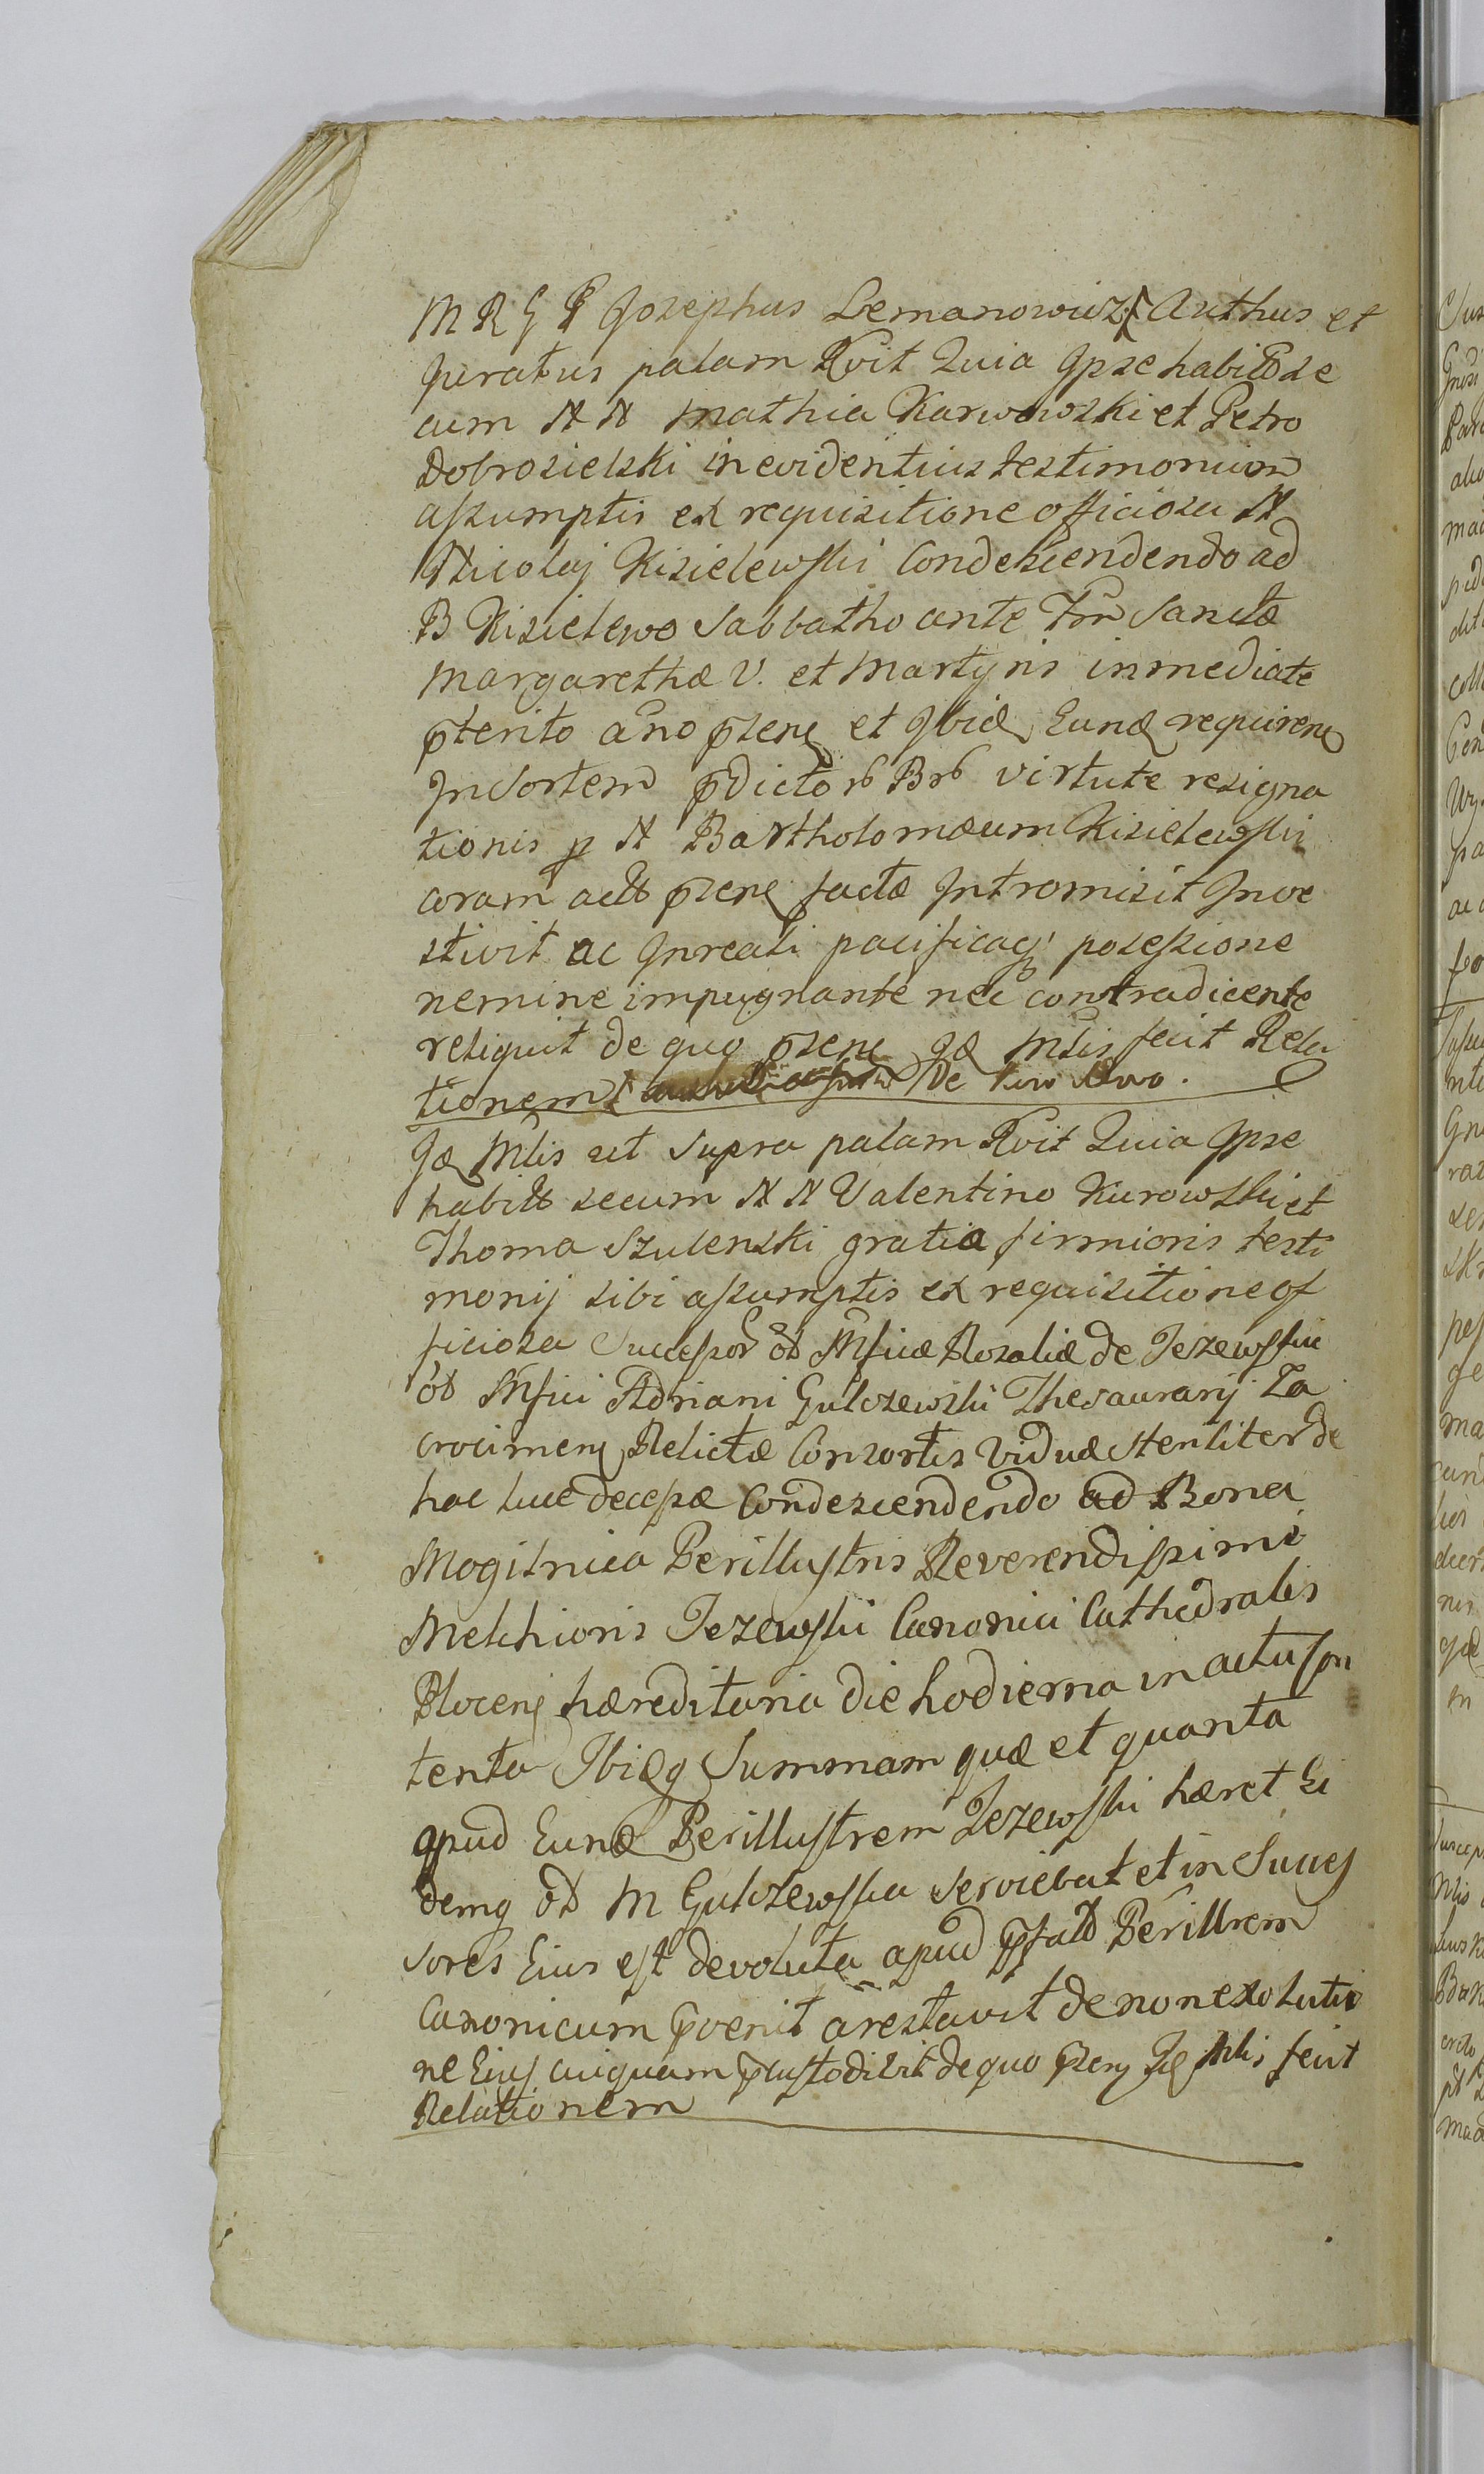 M R G P Josephus Lemanowicz Authus et
Juratus palam Rvit Quia Ipse habitis se
cum N N Mathia Karwowski et Petro
Dobrosielski in evidentius testimonium
assumptis ex requisitione officiosa N
Nicolaj Kisielewski Condescendendo ad
B Kisielewo Sabbatho ante Fm Sanctæ
Margarethæ V. et Martyris inmediate
pterito ano psens et Ibid Eund requirens
In Sortem pdictor Bor virtute resigna
tionis p N Bartholomæum Kisielewski
coram actis psens factæ Intromisit Inve
stivit ac In reali pacificaq posessione
nemine impugnante nec contradicente
reliquit de quo psens Id Mlis fecit Rela
tionem De Suo Suo.
Id Mlis ut Supra palam Rvit Quia Ipse
habitis secum N N Valentino Kurowski et
Thoma Szulenski gratia firmioris testi
monij sibi assumptis ex requisitione of
ficiosa Successor ol Mficæ Rosaliæ de Jezewskie
ol Mfici Adriani Gulczewski Thesaurarij Za
crocimens Relictæ Consortis Viduæ Steriliter de
hac luce decessæ Condescendendo ad Bona
Mogilnica Perillustris Reverendissimi
Melchioris Jezewski Canonici Cathedralis
Plocens hæreditaria die hodierna in actu con
tenta Ibidq Summam quæ et quanta
apud Eund Perillustrem Jezewski hæret Ei
demq ol M Gulczewska serviebat et in Succes
sores Eius est devoluta apud pfatt Perillrem
Canonicum pvenit arestavit de non exolutio
ne Eius cuiquam pcustodivit de quo psens Id Mlis fecit
Relationem